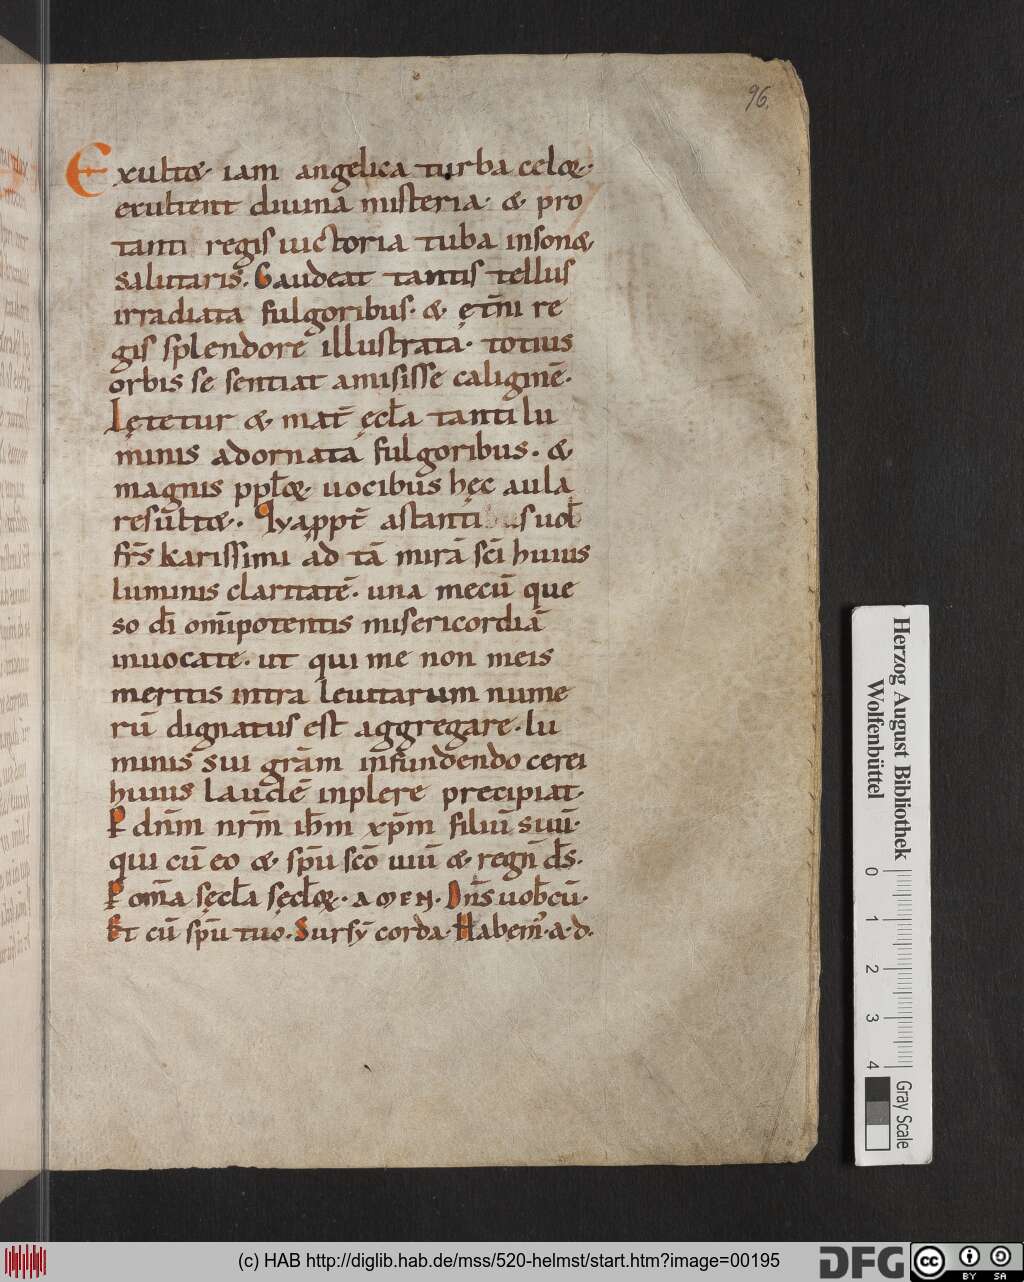 96.
Exult&. iam angelica turba celoꝝ.
exultent diuina misteria. & pro
tanti regis uictoria tuba inson&
salutaris. Gaudeat tantis tellus
irradiata fulgoribus. & ęt̄ni re
gis splendore illustrata. totius
orbis se sentiat amisisse caliginē.
Lętetur & mat̄ ęcl̄a tanti lu
minis adornata fulgoribus. &
magnis ppl̄oꝝ uocibus hęc aula
result&. Qꝓpt̄ astanti suob̄
fr̄s karissimi ad tā mirā sc̄i huius
luminis claritatē. una mecū que
so dī om̄ipotentis misericordiā
inuocate. ut qui me non meis
meritis intra leuitarum nume
rū dignatus est aggregare. lu
minis sui grām infundendo cerei
huius laudē inplere precipiat.
P dn̄m nr̄m ih̄m xp̄m filiū suū.
qui cū eo & sp̄u sc̄o uiū & regn̄ d̄s.
P om̄a sęcl̄a sęcl̄oꝝ. AMEN. Dn̄s uob̄cū.
Et cū sp̄u tuo. Sursū corda. Habem̉. a. d.
Herzog August Bibliothek
Wolfenbüttel
0 1 2 3 4
Gray Scale
(c) HAB http://diglib.hab.de/mss/520-helmst/start.htm?image=00195
DFG
cc BY SA